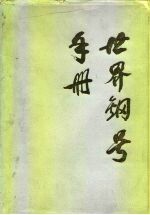 世界钢号
手册